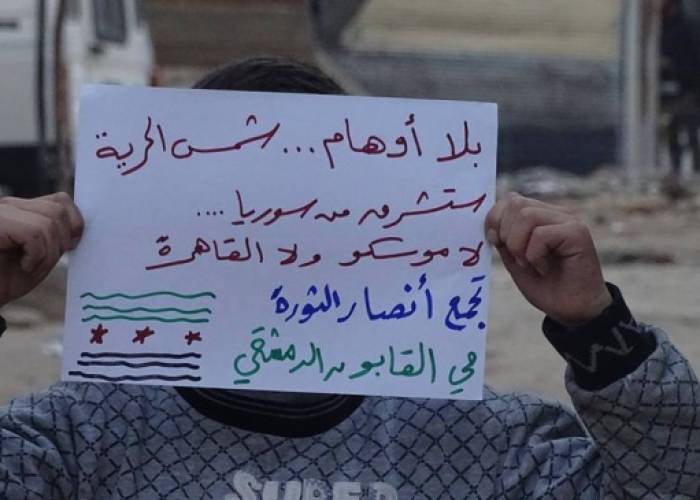 بلا أوهام... شمس الحرية
ستشرق من سوريا ....
لا موسكو ولا القاهرة
تجمع أنصار الثورة
في القابون الدمشقي
SUPER